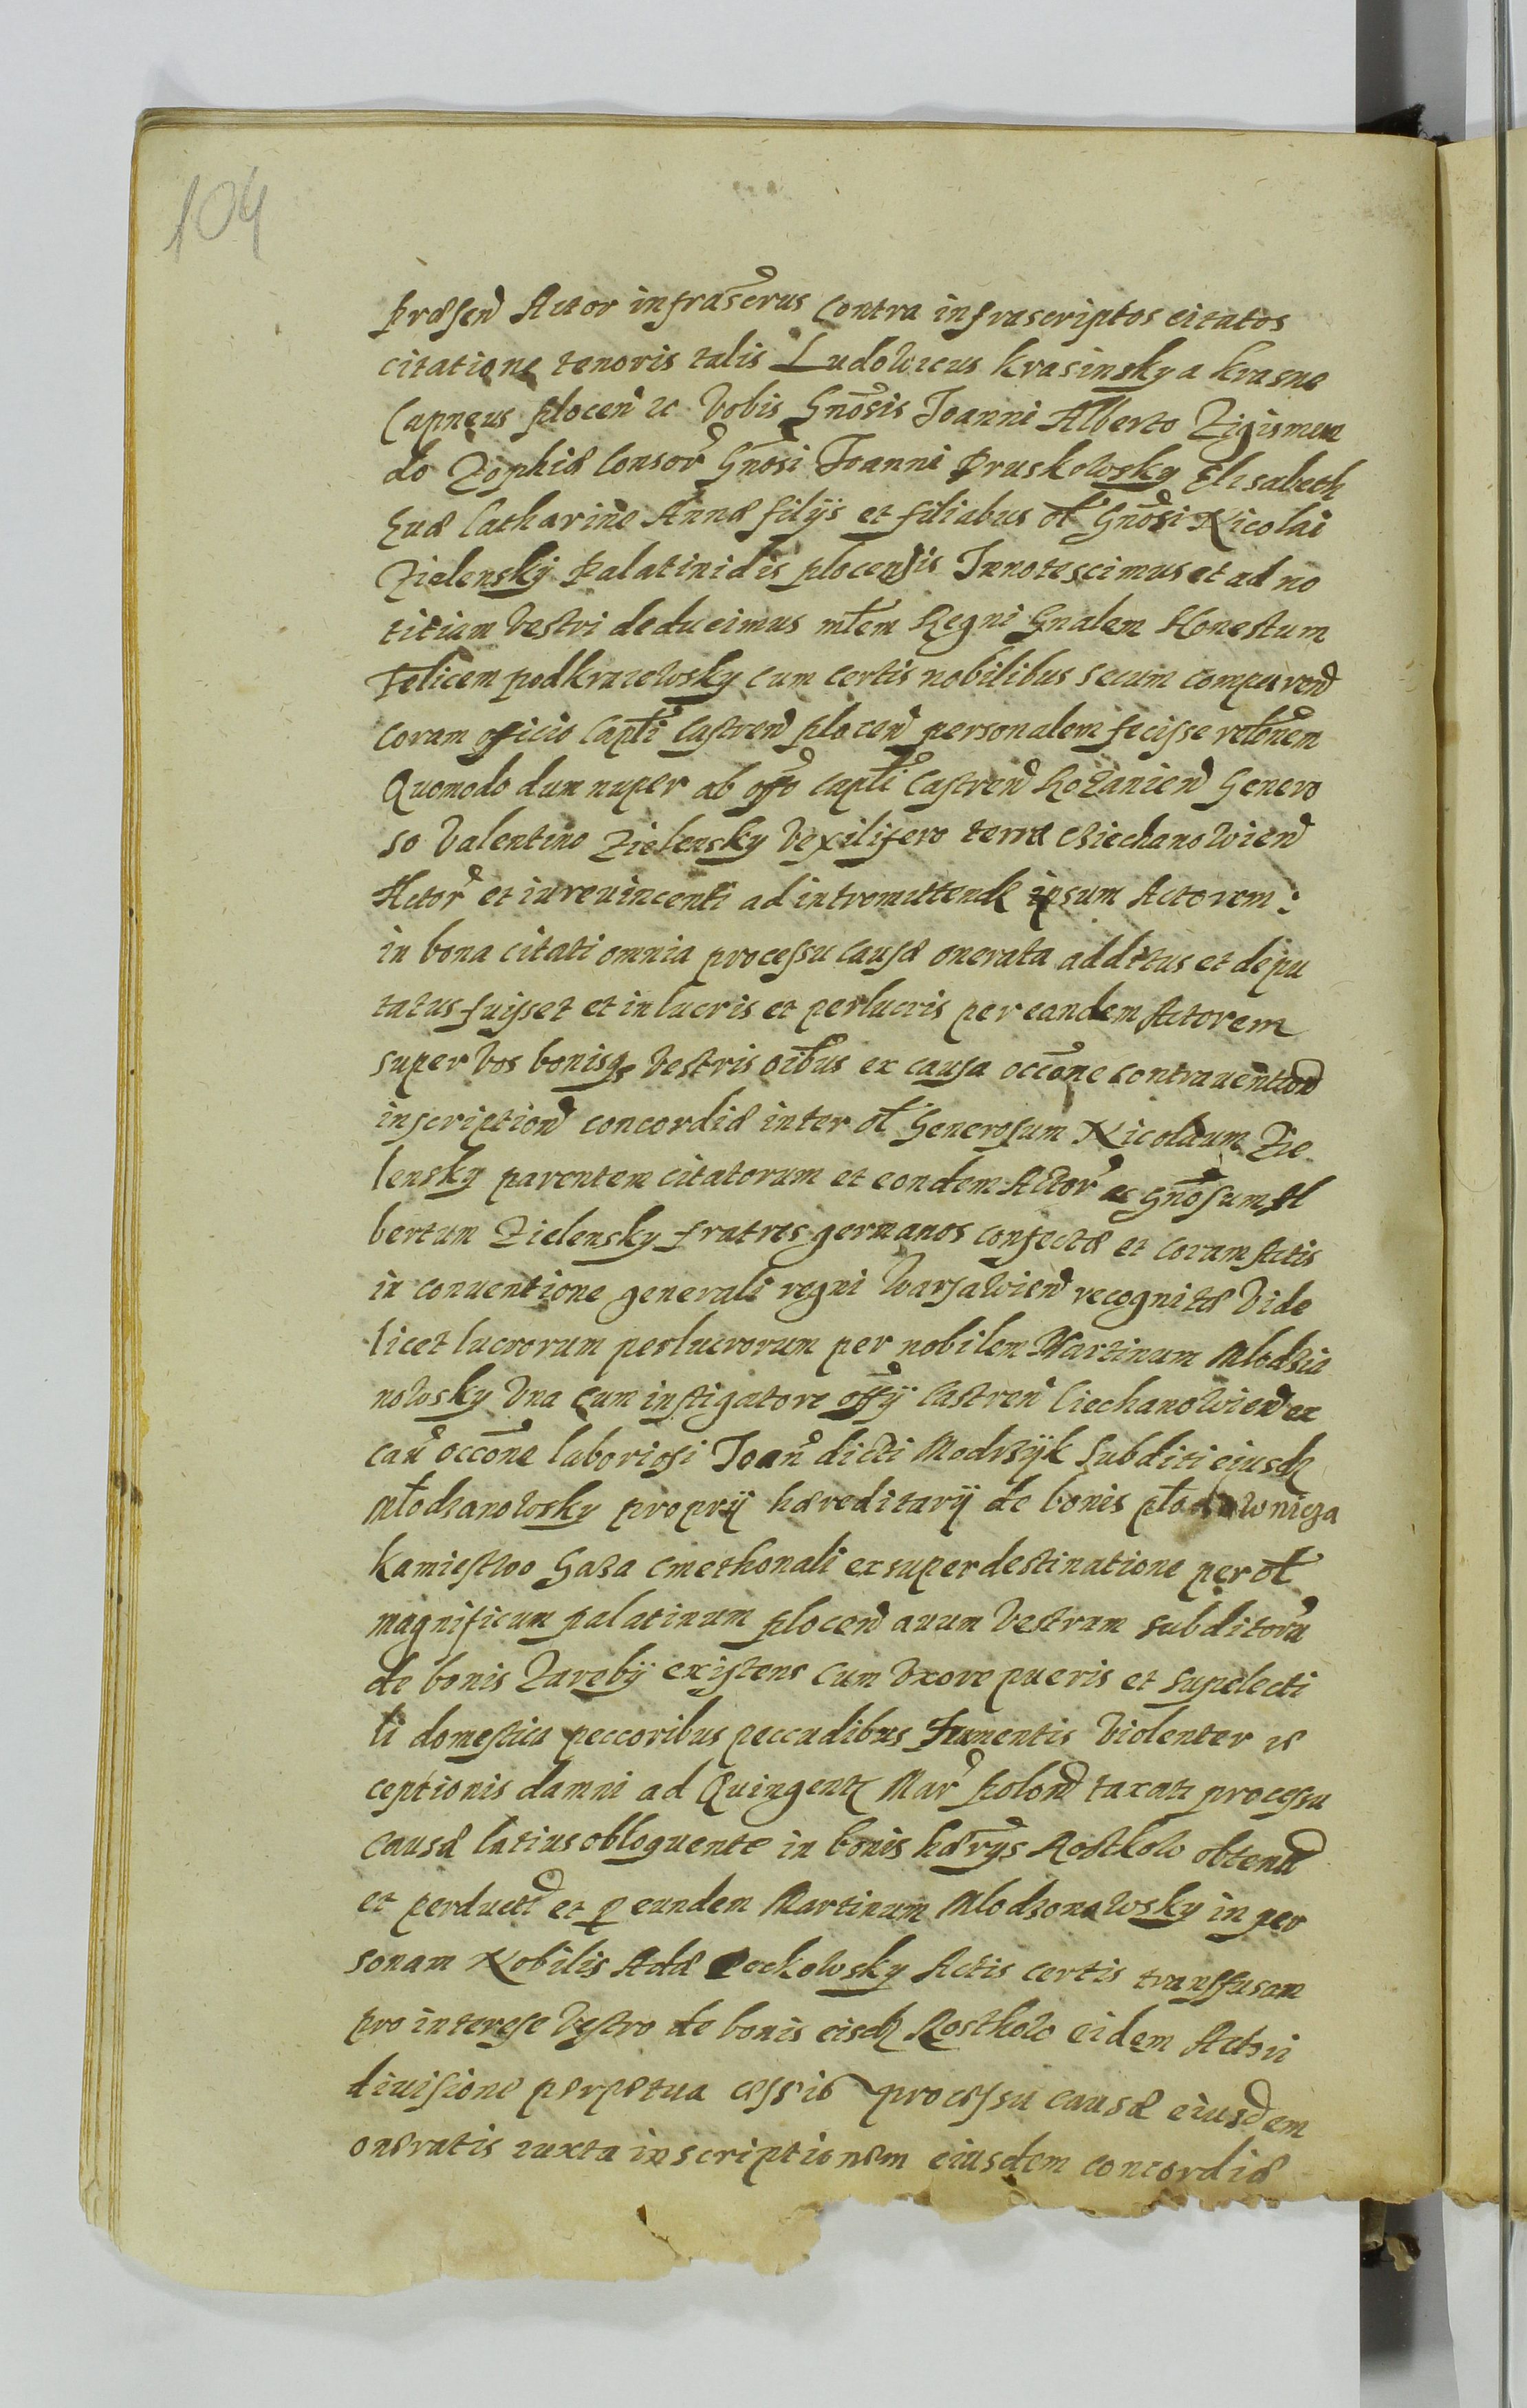 104
præsen Actor infrascrus contra infrascriptos citatos
citatione tenoris talis Ludowicus Krasinsky a Krasne
Capneus plocen etc Vobis Gnosis Joanni Alberto Zigismun
do Zophiæ Consor Gnosi Joanni Pruskowsky Elisabeth
Euæ Catharine Annæ filijs et filiabus ol Gnosi Nicolai
Zielensky Palatinidis plocensis Innotescimus et ad no
titiam Vestri deducimus mtem Regni Gnalem Honestum
Felicem podkrazewsky cum certis nobilibus secum comparen
coram officio Capti Castren plocen personalem fecisse relonem
Quomodo dum nuper ab offo capti Castren Rozanien Genero
so Valentino Zielensky Vexilifero terræ Ciechanowien
Actor et iureuincenti ad intromittend ipsum Actorem
in bona citati omnia processu causæ onerata additus et depu
tatus fuisset et in lucris et perlucris per eandem Actorem
super Vos bonisq Vestris oibus ex causa occone contrauention
inscription concordiæ inter ol Generosum Nicolaum Zie
lensky parentem citatorum et eondem Actor ac Gnosum Al
bertum Zielensky fratres germanos confectæ et coram Actis
in conuentione generali regni Warsawien recognitæ Vide
licet lucrorum perlucrorum per nobilem Martinum Mlodzia
nowsky Vna cum instigatore offij Castren Ciechanowien ex
cau occone laboriosi Joan dicti Modrzijk Subditi eiusd
Młodzanowsky proprij hæreditarij de bonis
Kamiestwo Gaza cmethonali ex super destinatione per ol
magnificum palatinum plocen auum Vestrum subditoru
de bonis Zarebij existens cum Vxore pueris et supelecti
li domestica peccoribus peccudibus frumentis Violenter re
ceptionis damni ad Quingent Mar polon taxati processu
causæ latius obloquente in bonis hærijs Rostkow obten
et perducti et p eundem Martinum Mlodzonawsky in per
sonam Nobilis Adæ Actis certis transfusam
pro interese Vestro de bonis eisd Rostkow eidem Actori
diuisione perpetua cessis processu causæ eiusdem
oneratis iuxta inscriptionem eiusdem concordiæ